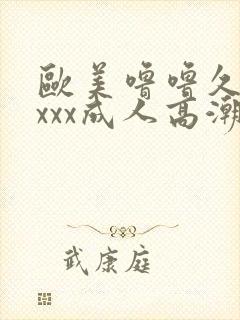 歐美嚕嚕久
xxx成人高潮
武康庭